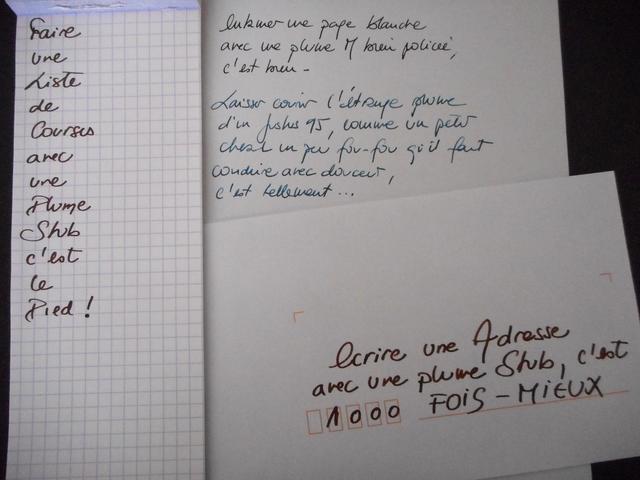 Faire
une
Liste
de
Courses
avec
une
Plume
Stub
c'est
le
Pied !
une page blanche
avec une plume M bien policée,
c'est bien -
Laisser courir l'étrange plume
d'un Justus 95, comme un petit
cheval un peu fou-fou qu'il faut
conduire avec douceur,
c'est tellement ...
Ecrire une Adresse
avec une plume Stub, c'est
1000 FOIS - MiEUX